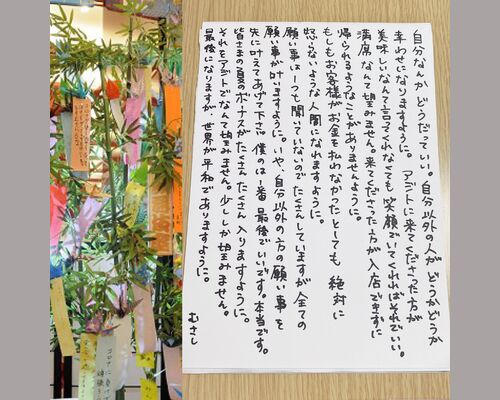 自分なんかどうだっていい。自分以外の人がどうかどうか
幸わせになりますように。アジトに来てくださった方が
美味しいなんて言ってくれなくても笑顔でいてくれればそれでいい。
満席なんて望みません。来てくださった方が入店できずに
帰られるようなことがありませんように。
もしもお客様がお金を払わなかったとしても絶対に
怒らないような人間になれますように。
願い事は一つも聞いていないのでたくさんしていますが全ての
願い事が叶いますように。いや、自分以外の方の願い事を
先に叶えてあげて下さい。僕のは1番最後でいいです。本当です。
皆さまの夏のボーナスがたくさんたくさん入りますように。
それをアジトでなんて望みません。少ししか望みません。
最後になりますが、世界が平和でありますように。
むさし
コロナに